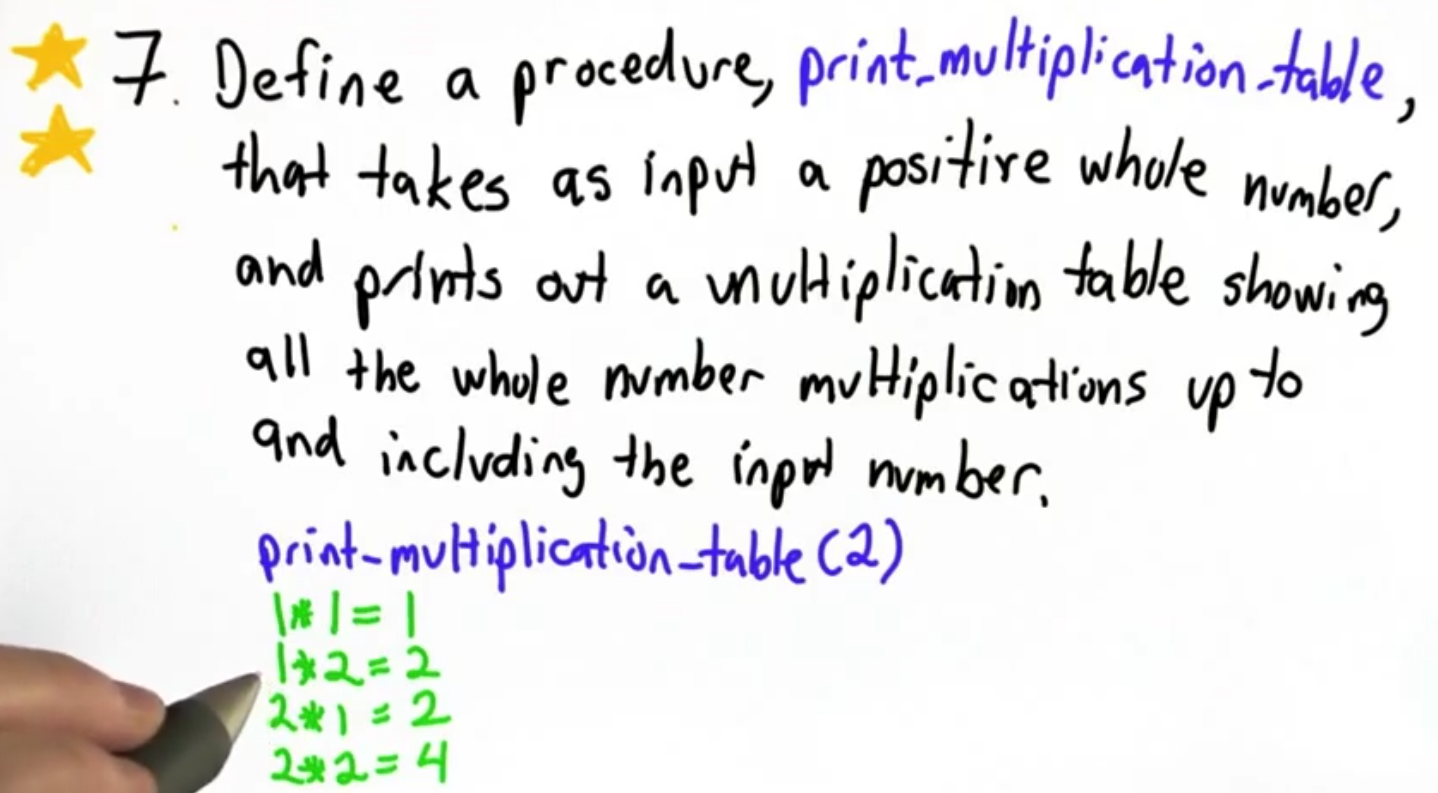 7. Define a procedure, print_multiplication_table,
that takes as input a positive whole number,
and prints out a multiplication table showing
all the whole number multiplications up to
and including the input number.
print_multiplication_table(2)
1*1=1
1*2=2
2*1=2
2*2=4